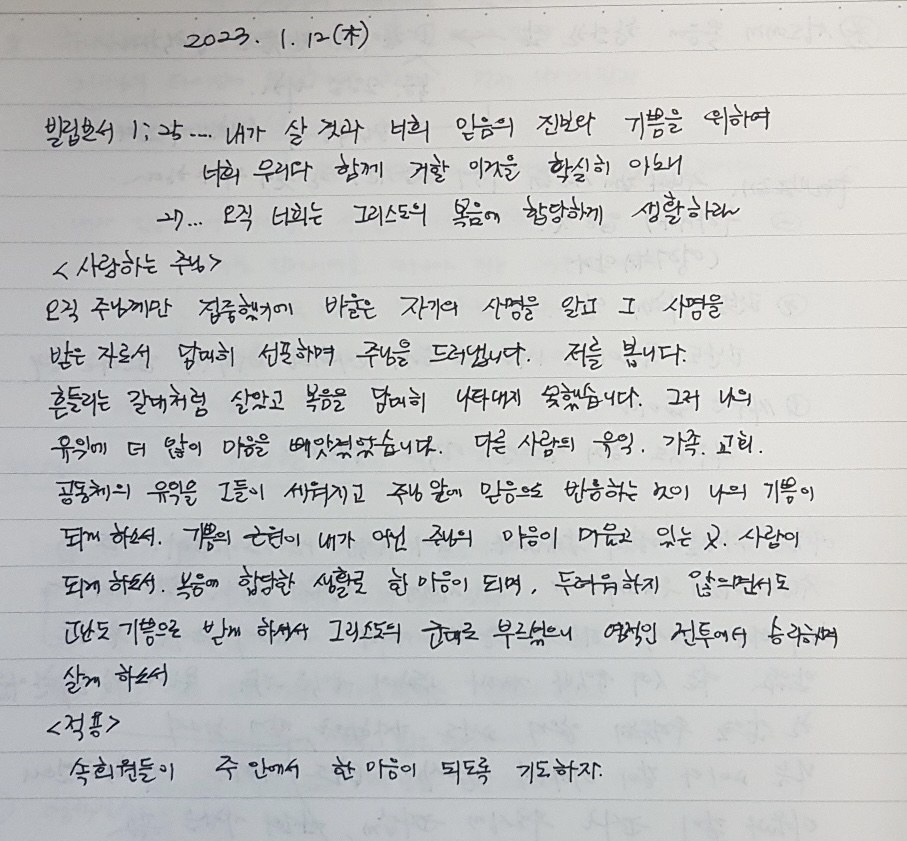 2023. 1. 12(木)
빌립보서 1:25... 내가 살 것과 너희 믿음의 진보와 기쁨을 위하여
너희 무리와 함께 거할 이것을 확실히 아노니
27... 오직 너희는 그리스도의 복음에 합당하게 생활하라
<사랑하는 주님>
오직 주님께만 집중했기에 바울은 자기의 사명을 알고 그 사명을
받은 자로서 담대히 선포하며 주님을 드러냅니다. 저를 봅니다.
흔들리는 갈대처럼 살았고 복음을 담대히 나타내지 못했습니다. 그저 나의
유익에 더 많이 마음을 빼앗겼었습니다. 다른 사람의 유익. 가족. 교회.
공동체의 유익을 그들이 세워지고 주님 앞에 믿음으로 반응하는 것이 나의 기쁨이
되게 하소서. 기쁨의 근원이 내가 아닌 주님의 마음이 머물고 있는 곳. 사람이
되게 하소서. 복음에 합당한 생활로 한 마음이 되며, 두려워하지 않으면서도
고난도 기쁨으로 받게 하셔서 그리스도의 군대로 부르셨으니 영적인 전투에서 승리하며
살게 하소서
<적용>
속회원들이 주 안에서 한 마음이 되도록 기도하자.